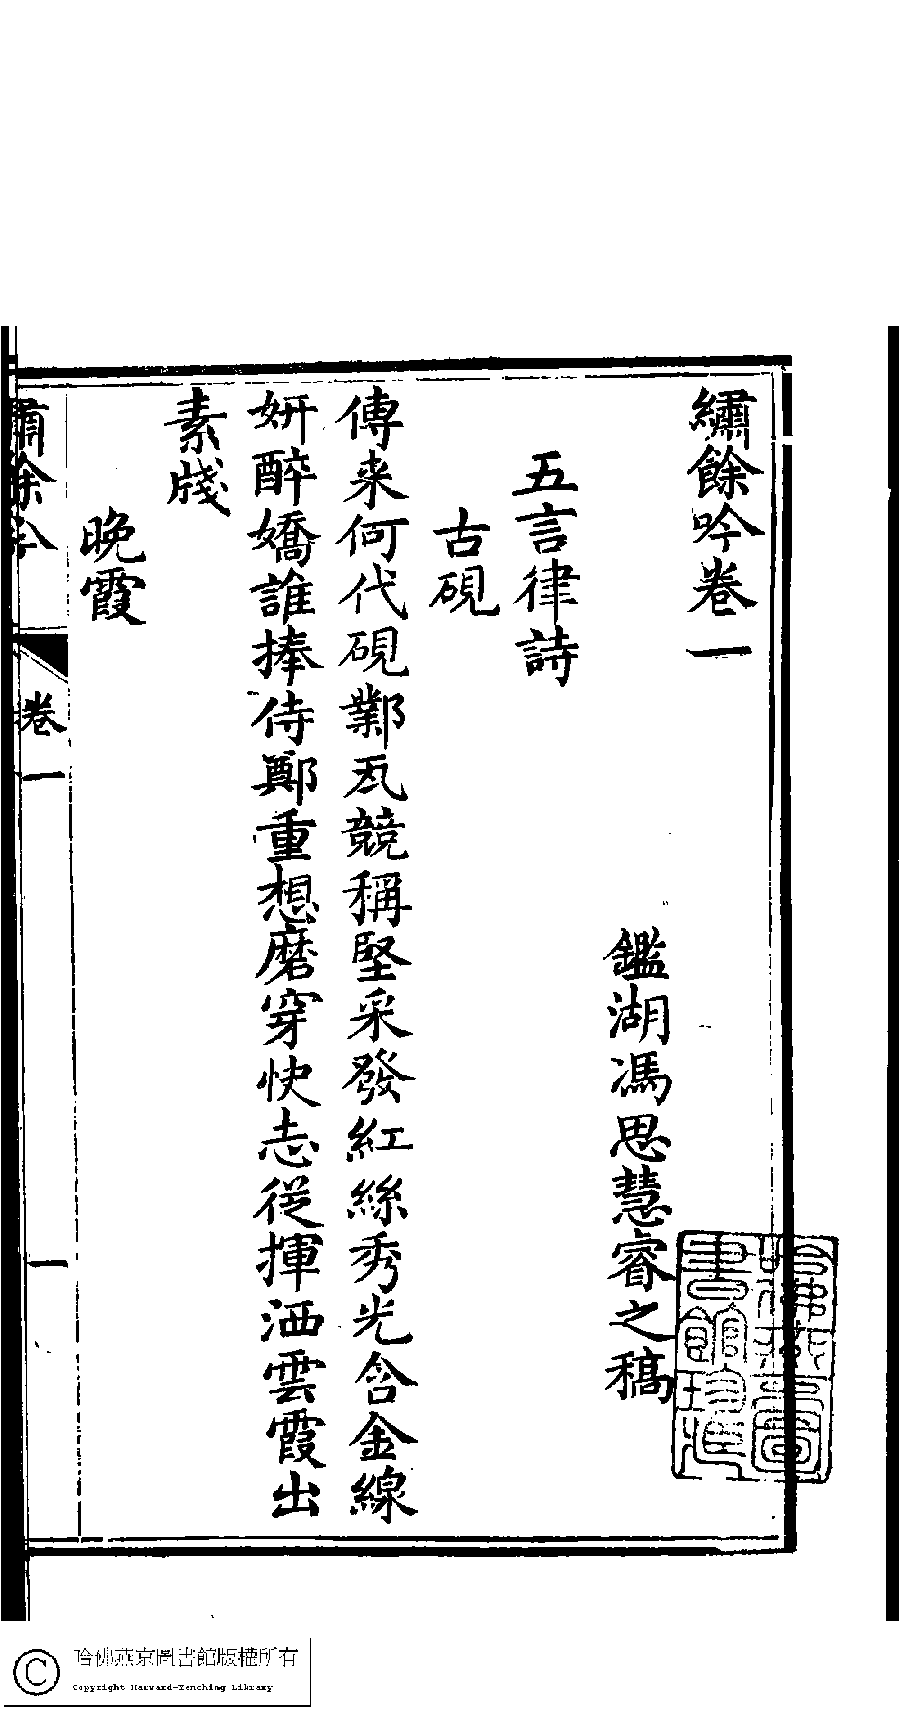 繡餘吟卷一
鑑湖馮思慧睿之稿
五言律詩
古硯
傳来何代硯鄴瓦競稱堅采發紅絲秀光含金線
妍醉嬌誰捧侍鄭重想磨穿快志從揮洒雲霞出
素牋
晚霞
繡餘吟
卷一
一
哈佛燕京圖書館珍藏
哈佛燕京圖書館版權所有
Copyright Harvard-Yenching Library